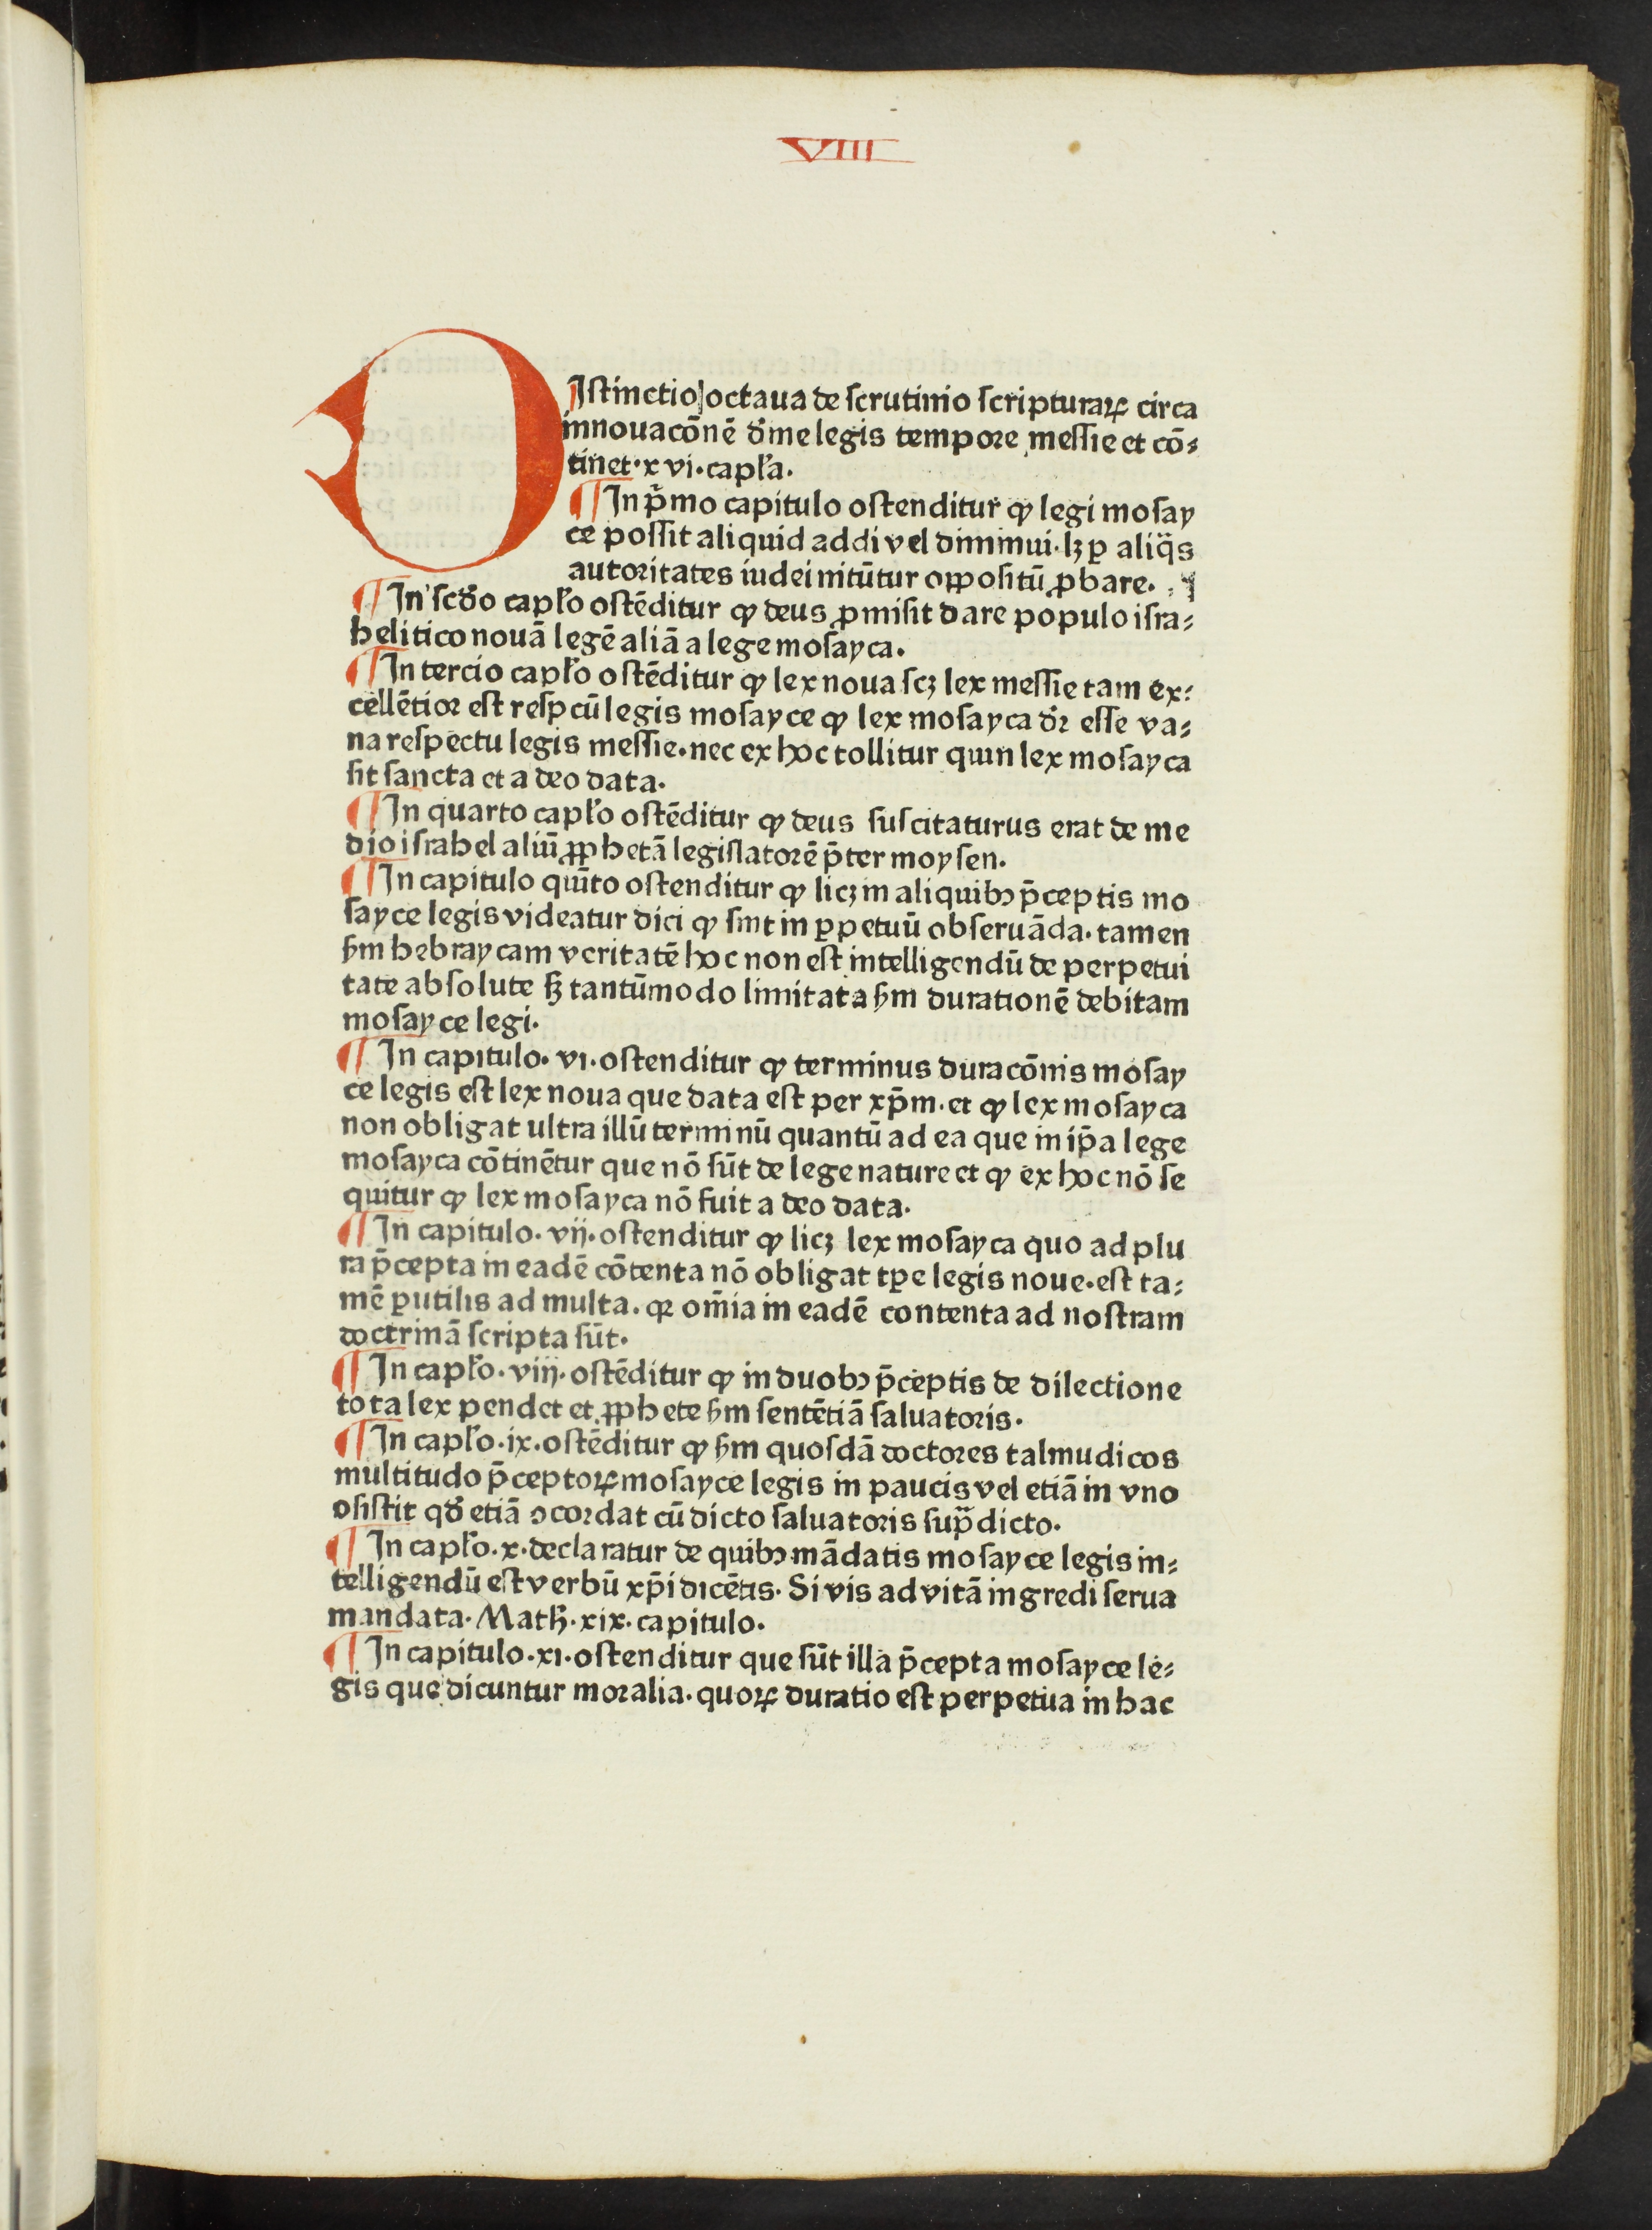 VIII
DIſtinctio octaua de ſcrutinio ſcripturaꝝ circa
innouacōnē diuīe legis tempore meſſie et cō⸗
tinet·xvi·capl'a.
¶In pͥmo capitulo oſtenditur ꝙ legi moſay
ce poſſit aliquid addi vel diminui·lꝫ ꝑ aliqͣs
autoritates iudei nitūtur oppoſitū ꝓbare.
¶In ſcd̓o capl'o oſtēditur ꝙ deus ꝓmiſit dare populo iſra⸗
helitico nouā legē aliā a lege moſayca.
¶In tercio capl'o oſtēditur ꝙ lex noua ſcꝫ lex meſſie tam ex⸗
cellētior eſt reſpcū legis moſayce ꝙ lex moſayca d̓r eſſe va⸗
na reſpectu legis meſſie.nec ex hoc tollitur quin lex moſayca
ſit ſancta et a deo data.
¶In quarto capl'o oſtēditur ꝙ deus ſuſcitaturus erat de me
dio iſrahel aliū ꝓphetā legiſlatorē p̄ter moyſen.
¶In capitulo quīto oſtenditur ꝙ licꝫ in aliquibꝯ p̄ceptis mo
ſayce legis videatur dici ꝙ ſint in ꝑpetuū obſeruāda·tamen
ẜm hebraycam veritatē hoc non eſt intelligendū de perpetui
tate abſolute ſꝫ tantūmodo limitata ẜm durationē debitam
moſayce legi.
¶In capitulo·vi·oſtenditur ꝙ terminus duracōnis moſay
ce legis eſt lex noua que data eſt per xp̄m.et ꝙ lex moſayca
non obligat ultra illū terminū quantū ad ea que in ip̄a lege
moſayca cōtinētur que nō ſūt de lege nature et ꝙ ex hoc nō ſe
quitur ꝙ lex moſayca nō fuit a deo data·
¶In capitulo·vij·oſtenditur ꝙ licꝫ lex moſayca quo ad plu
ra p̄cepta in eadē cōtenta nō obligat tꝑe legis noue.eſt ta⸗
mē ꝑutilis ad multa.qꝛ om̄ia in eadē contenta ad noſtram
doctrinā ſcripta ſūt·
¶In capl'o·viij·oſtēditur ꝙ in duobꝯ p̄ceptis de dilectione
tota lex pendet et ꝓphete ẜm ſentētiā ſaluatoris·
¶In capl'o·ix·oſtēditur ꝙ ẜm quoſdā doctores talmudicos
multitudo p̄ceptoꝝ moſayce legis in paucis vel etiā in vno
ↄſiſtit qd̓ etiā ↄcordat cū dicto ſaluatoris ſupͣdicto.
¶In capl'o·x·declaratur de quibꝯ mādatis moſayce legis in⸗
telligendū eſt verbū xp̄i dicētis·Si vis ad vitā ingredi ſerua
mandata·Math̓·xix·capitulo.
¶In capitulo·xi·oſtenditur que ſūt illa p̄cepta moſayce le⸗
gis que dicuntur moralia·quoꝝ duratio eſt perpetua in hac